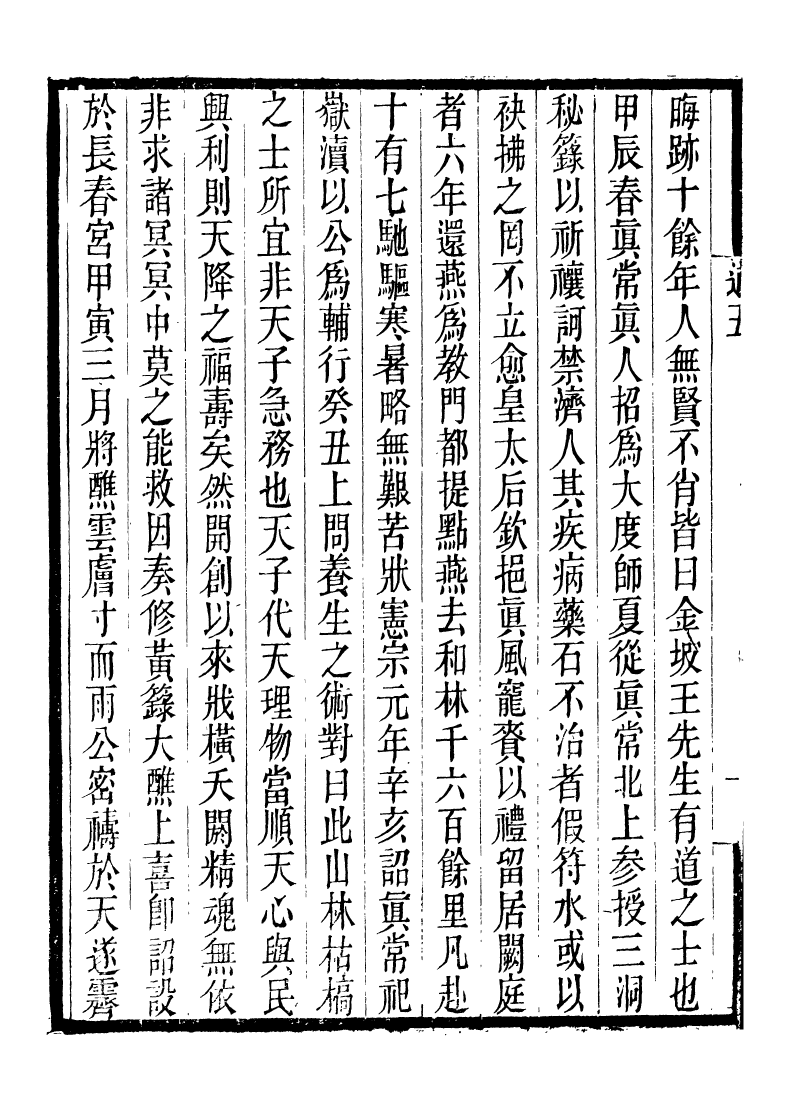 晦跡十餘年人無賢不肖皆曰金坡王先生有道之士也
甲辰春眞常眞人招爲大度師夏從眞常北上參授三洞
秘籙以祈禳訶禁濟人其疾病藥石不治者假符水或以
袂拂之罔不立愈皇太后欽挹眞風寵賚以禮留居闕庭
者六年還燕爲教門都提點燕去和林千六百餘里凡赴
十有七馳驅寒暑略無艱苦狀憲宗元年辛亥詔眞常祀
嶽瀆以公爲輔行癸丑上問養生之術對曰此山林枯槁
之士所宜非天子急務也天子代天理物當順天心與民
興利則天降之福壽矣然開創以來戕橫夭閼精魂無依
非求諸冥冥中莫之能救因奏修黃籙大醮上喜卽詔設
於長春宮甲寅三月將醮雲膚寸而雨公密禱於天遂霽